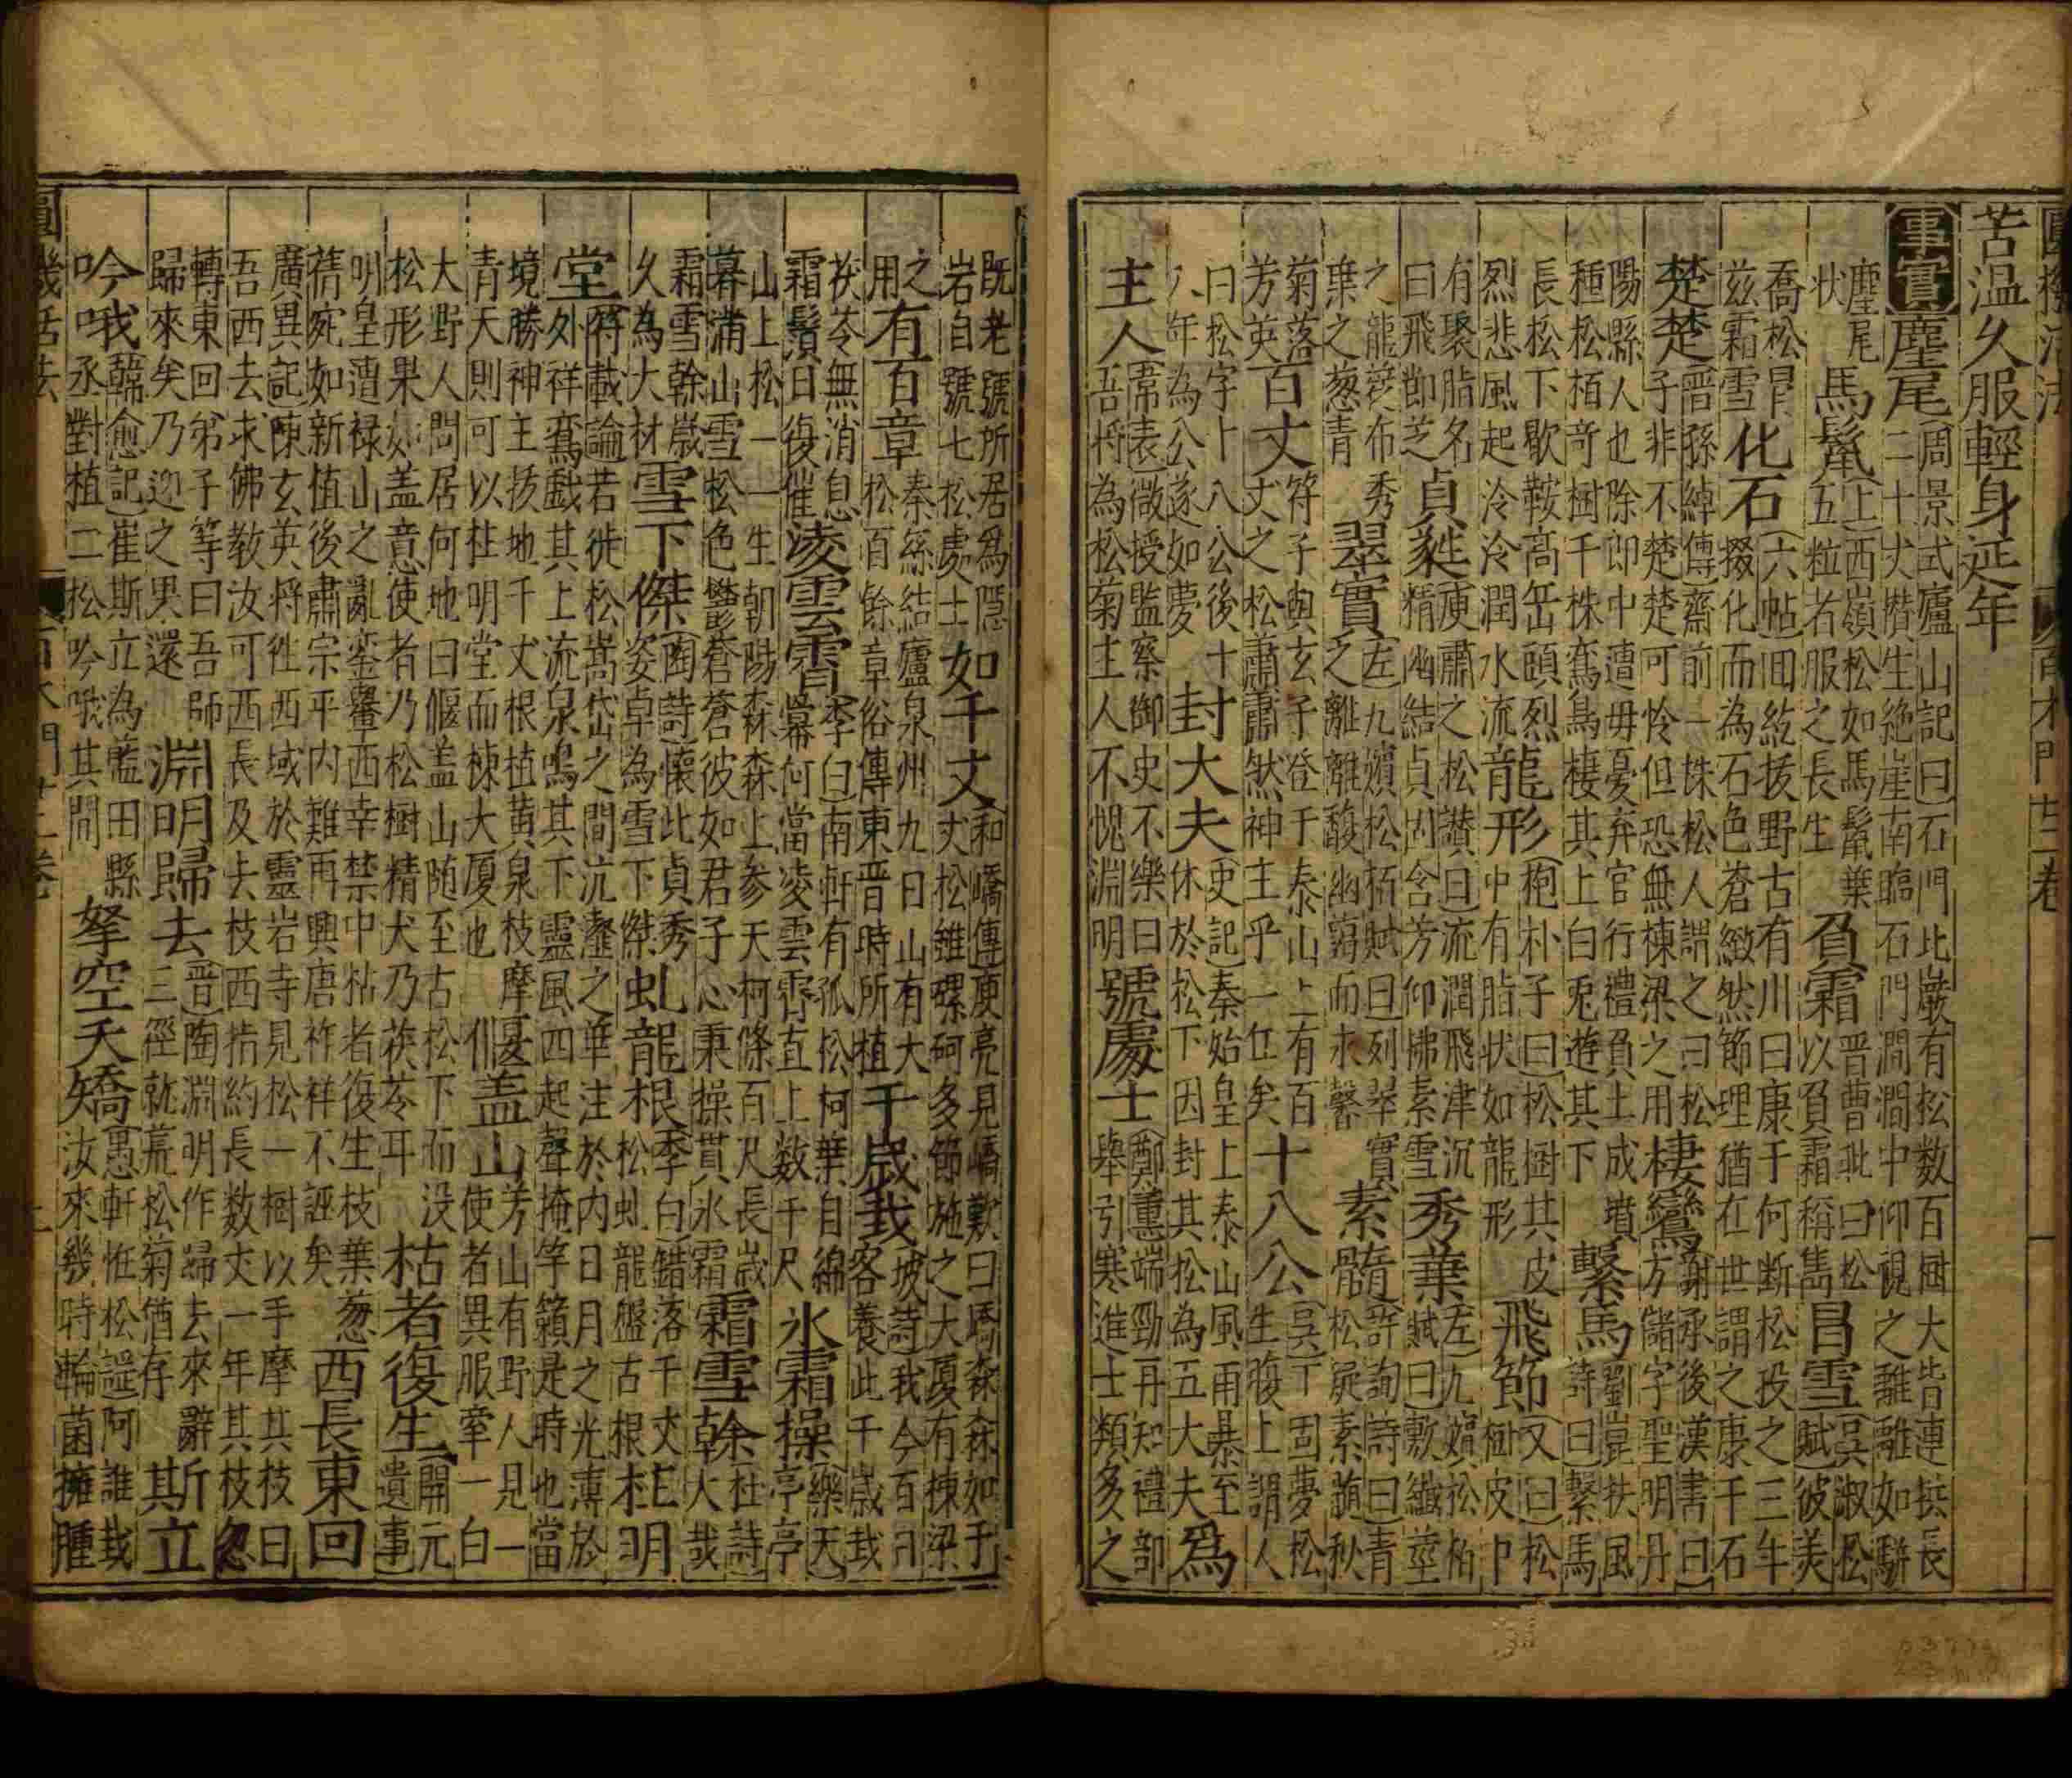 圓機活法 百木門 廿二卷 一
苦温久服輕身延年
事實 麈尾 周景式廬山記曰石門北巖有松数百囷大皆連抎長二十丈㬱生絶崖南臨石門澗澗中仰視之離離如駢
麈尾狀 馬鬣 上西嶺松如馬鬣葉五粒者服之長生 負霜 晋曹毗曰松以負霜稱雋 冒雪 吳淑松賦彼美
喬松冒兹霜雪 化石 六帖回紇拔野古有川曰康于何断松投之三年掇化而為石色蒼緻然節理猶在世謂之康千石
楚楚 晋孫綽傳齋前一株松人謂之曰松子非不楚楚可怜但恐無棟梁之用 棲鸞 謝承後漢書曰方儲字聖明丹
陽縣人也除郎中遭毋憂弃官行禮負土成墳種松栢奇樹千株鸞鳥棲其上白兎遊其下 繫馬 劉崑扶風詩曰繫馬
長松下歇鞍高岳頤烈烈悲風起泠泠潤水流 龍形 抱朴子曰松樹其皮中有脂狀如龍形 飛節 又曰松樹皮中
有聚脂名曰飛節芝 貞蕤 庾肅之松讃曰流潤飛津沉精幽結貞含芳仰拂素雪 秀葉 左九嬪松柏賦曰敷纎莖
之龍蓯布秀葉之葱青 翠實 左九嬪松栢賦曰列翠實之離離馥幽藹而永馨 素髓 許詢詩曰青松凝素髓秋
菊落芳英 百丈 符子與玄子登于泰山上有百丈之松蕭肅然神王乎一丘矣 十八公 吳丁固夢松生腹上謂人
曰松字十八公後十八年為公遂如夢 封大夫 史記秦始皇上泰山風雨暴至休於松下因封其松為五大夫 為
主人 常表微授監察御史不樂曰吾将為松菊主人不愧淵明 號處士 鄭薫端勁再知禮部舉引寒進士類多之
既老號所居為隠岩自號七松處士 如千丈 和嶠傳庾亮見嶠歎曰嶠森森如千丈松雖磥砢多節施之大厦有棟梁
之用 有百章 秦絲結廬泉州九日山有大松百餘章俗傳東晋時所植 千歳哉 坡詩我今百日客養此千歳哉
茯苓無消息霜鬢日復催 凌雲霄 李白南軒有孤松柯葉自綿冪何當凌雲霄直上数千尺 氷霜操 樂天亭亭
山上松一一生朝陽森森上参天柯條百尺長歳暮滿山雪松色鬱蒼蒼彼如君子心秉操貫氷霜 霜雪幹 杜詩大哉
霜雪幹歳久為大材 雪下傑 陶詩懐此貞秀姿卓為雪下傑 虬龍根 李白錯落千丈松虬龍盤古根 柱明
堂 符載論若徙松嵩岱之間沆瀣之華注於内日月之光薄於外祥鸞戲其上流泉鳴其下靈風四起聲掩竽籟是時也當
境勝神主拔地千丈根植黄泉枝摩青天則可以柱明堂而棟大厦也 偃盖山 芳山有野人見一使者異服牽一白
犬野人問居何地曰偃盖山随至古松下而没松形果如盖意使者乃松樹精犬乃茯苓耳 枯者復生 開元遺事
明皇遭禄山之亂鑾轝西幸禁中枯者復生枝葉葱蒨宛如新植後肅宗平内難再興唐祚祥不誣矣 西長東回
廣異記陳玄英将徃西域於靈岩寺見松一樹以手摩其枝曰吾西去求佛教汝可西長及去枝西指約長数丈一年其枝忽
轉東回弟子等曰吾師歸來矣乃迎之果還 淵明歸去 晋陶淵明作歸去來辭三徑就荒松菊猶存 斯立
吟哦 韓愈記崔斯立為藍田縣丞對植二松吟哦其間 拏空夭矯 愚軒恠松謡阿誰栽汝來幾時輪菌擁腫
圓機活法 百木門 廿二卷 二